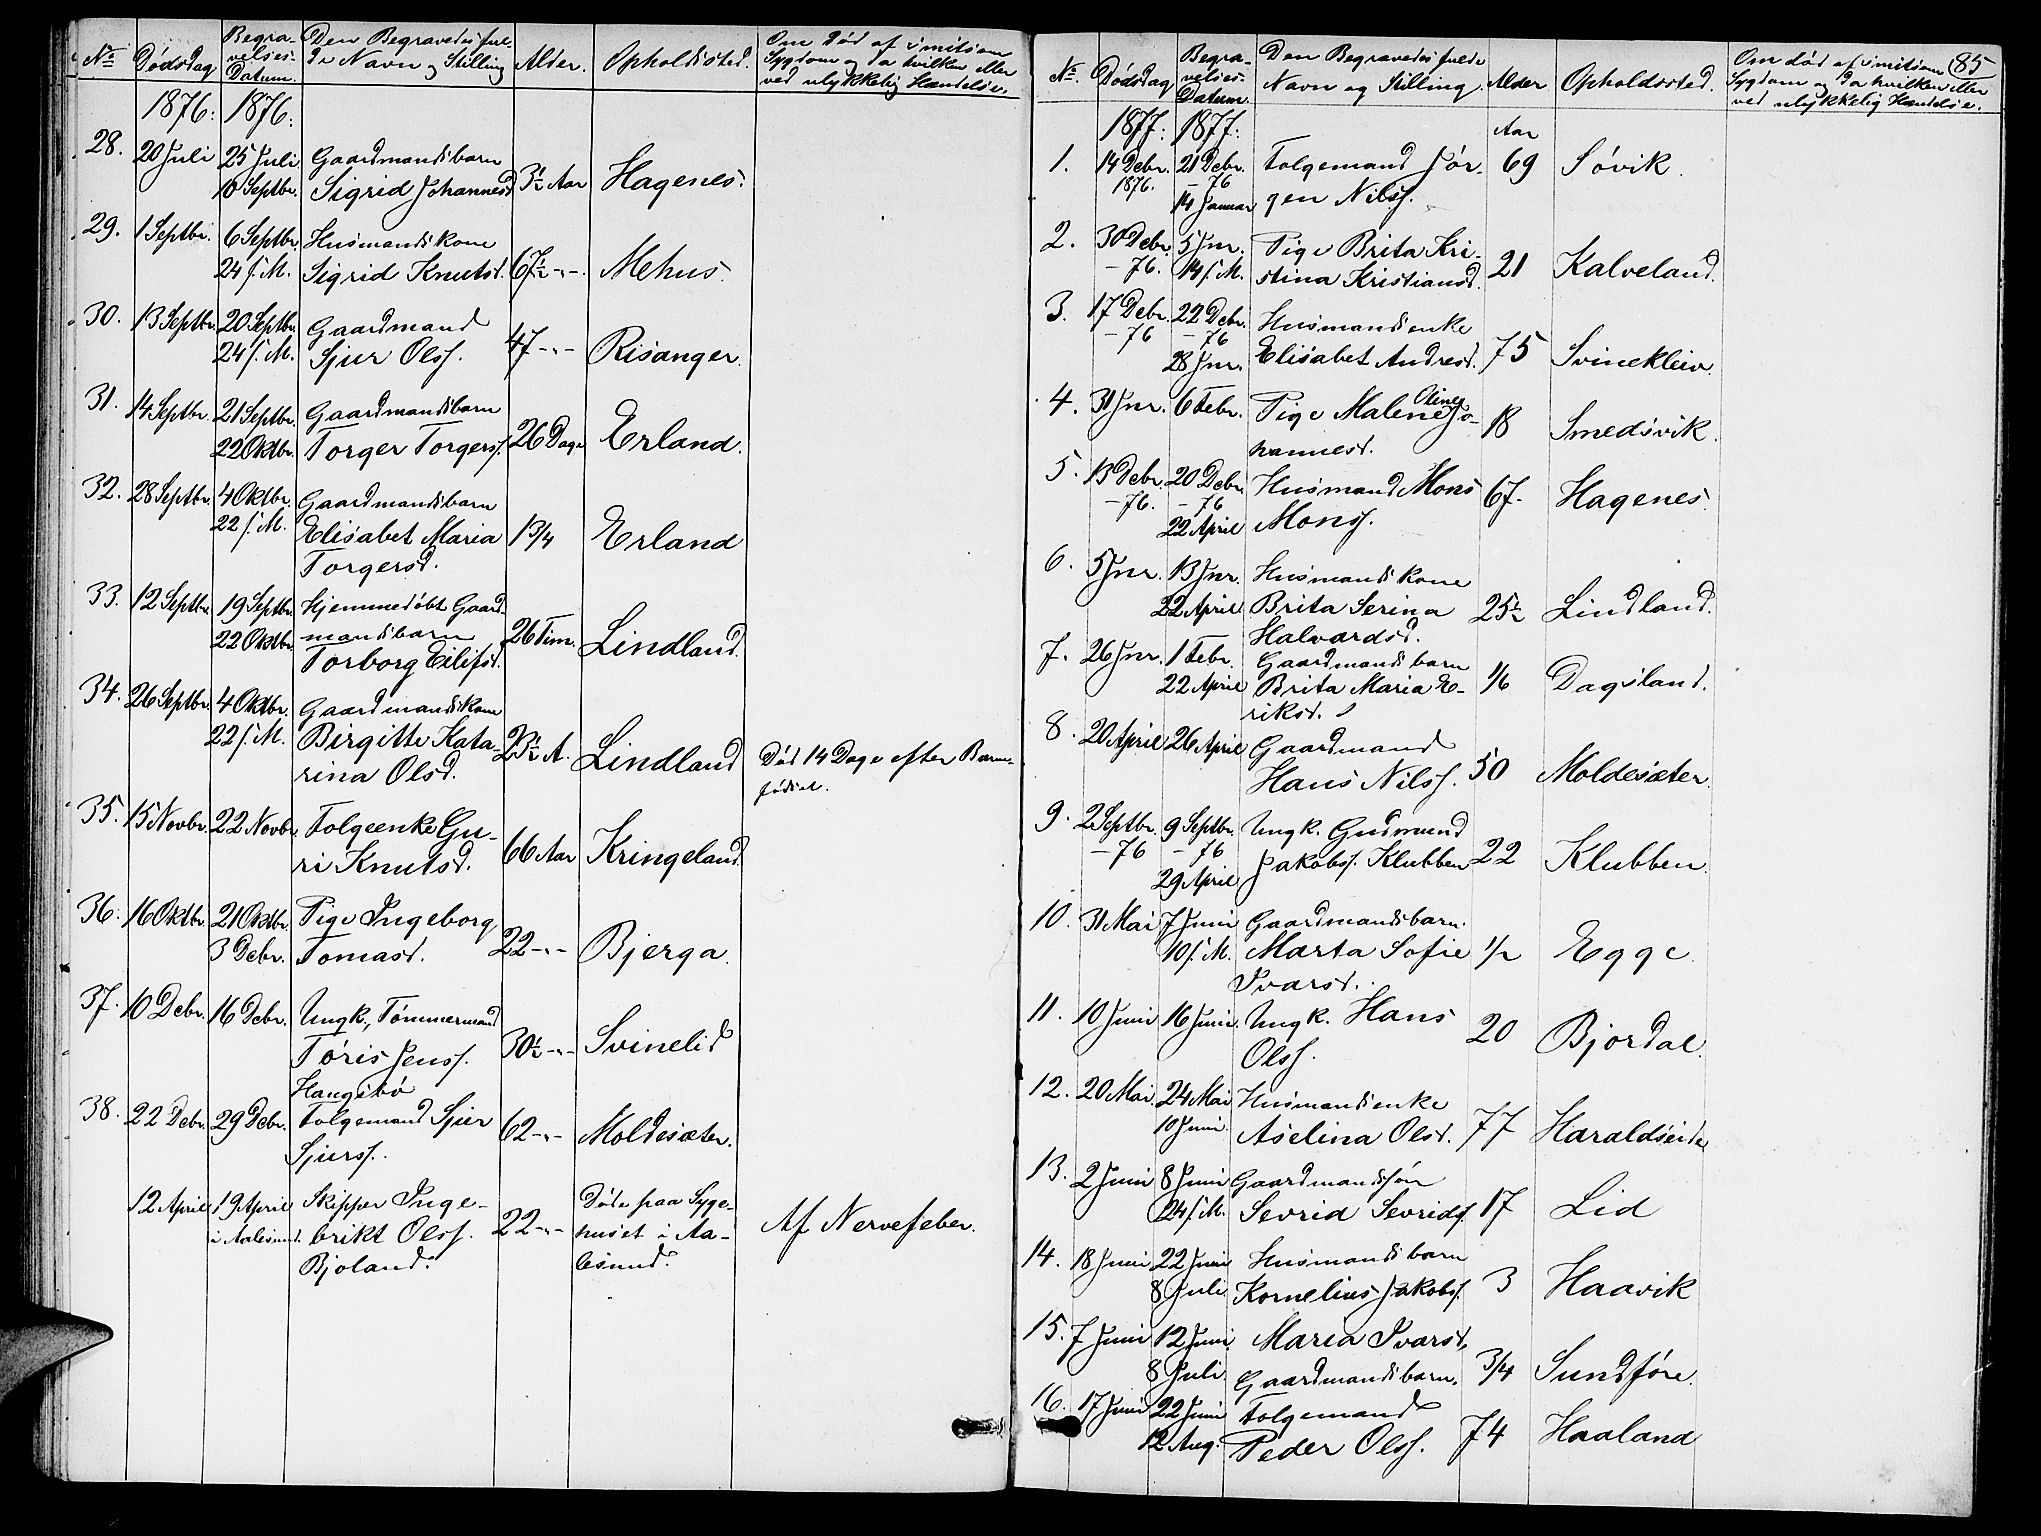 No Dødsdag Begra- Den Begravedes ful- Alder. Opholdssted. Om Død af smitsom
velses- de Navn og Stilling Sygdom og da hvilken eller
Datum. ved ulykkelig Hændelse.
1876: 1876:
28. 20 Juli 25 Juli Gaardmandsbarn
10 Septbr. Sigrid Johannesd. 3½ Aar Hagenes.
29. 1 Septbr. 6 Septbr. Husmandskone
24 s. M. Sigrid Knutsd. 67½ -"- Mehus.
30. 13 Septbr. 20 Septbr. Gaardmand
24 s. M. Sjur Olss. 47 -"- Risanger.
31. 14 Septbr. 21 Septbr. Gaardmandsbarn
22 Oktbr. Torger Torgerss. 26 Dage Erland.
32. 28 Septbr. 4 Oktbr. Gaardmandsbarn
22 s. M. Elisabet Maria 1 3/4 Erland
Torgersd.
33. 12 Septbr. 19 Septbr. Hjemmedøbt Gaard-
22 Oktbr. mandsbarn 26 Tim. Lindland.
Torborg Eilifsd.
34. 26 Septbr. 4 Oktbr. Gaardmandskone
22 s. M. Birgitte Kata- 23½ A. Lindland Død 14 Dage efter Barn-
rina Olsd. fødsel.
35. 15 Novbr. 22 Novbr. Folgeenke Gu-
ri Knutsd. 66 Aar Kringeland.
36. 16 Oktbr. 21 Oktbr. Pige Ingeborg
3 Debr. Tomasd. 22 -"- Bjerga.
37. 10 Debr. 16 Debr. Ungk., Tømmermand
Tøris Jenss. 30½ -"- Svinelid
Haugsbø
38. 22 Debr. 29 Debr. Folgemand Sjur 62 -"- Moldesæter.
Sjurss.
12 April 19 April Skipper Inge- Døde paa Syge-
i Aalesund. brikt Olss. 22 -"- huset i Aa- Af Nervefeber.
Bjoland. lesund.
85
No. Dødsdag Begra- Den Begravedes fulde Alder Opholdssted. Om død af smitsom
velses- Navn og Stilling. Sygdom og da hvilken eller
Datum. ved ulykkelig Hændelse.
1877: 1877: Aar
1. 14 Debr. 21 Debr. Folgemand Jør- 69 Søvik.
1876. -76
14 Januar gen Nilss.
2. 30 Debr. 5 Jnr. Pige Brita Kri-
-76. 14 s. M. stina Kristiansd. 21 Kalveland.
3. 17 Debr. 22 Debr. Husmandsenke
-76 -76
28 Jnr. Elisabet Andresd. 75 Svinekleiv.
4. 31 Jnr. 6 Febr. Pige Malene Oline Jo- 18 Smedsvik.
hannesd.
5. 13 Debr. 20 Debr. Husmand Mons 67. Hagenes.
-76. -76
22 April Monss.
6. 5 Jnr. 13 Jnr. Husmandskone
22 April Brita Serina 25½ Lindland.
Halvardsd.
7. 26 Jnr. 1 Febr. Gaardmandsbarn
22 April Brita Maria E- 1/6 Dagsland.
riksd.
8. 20 April 26 April Gaardmand
Hans Nilss. 50 Moldesæter.
9. 2 Septbr. 9 Septbr. Ungk. Gudmund
-76 -76 Jakobs. Klubben 22 Klubben.
29 April
10. 31 Mai 7 Juni Gaardmandsbarn.
10 s. M. Marta Sofie 1/2 Egge
Ivarsd.
11. 10 Juni 16 Juni. Ungk. Hans 20 Bjordal.
Olss.
12. 20 Mai. 24 Mai Husmandsenke
10 Juni. Aselina Olsd. 77 Haraldseide
13. 2 Juni 8 Juni Gaardmandssøn
24 s. M. Sevrid Sevridss. 17 Lid
14. 18 Juni 22 Juni Husmandsbarn
8 Juli Kornelius Jakobs. 3 Haavik
15. 7 Juni 12 Juni Maria Ivarsd.
8 Juli. Gaardmandsbarn. 3/4 Sundføre.
16. 17 Juni 22 Juni Folgemand
12 Aug. Peder Olss. 74 Haaland